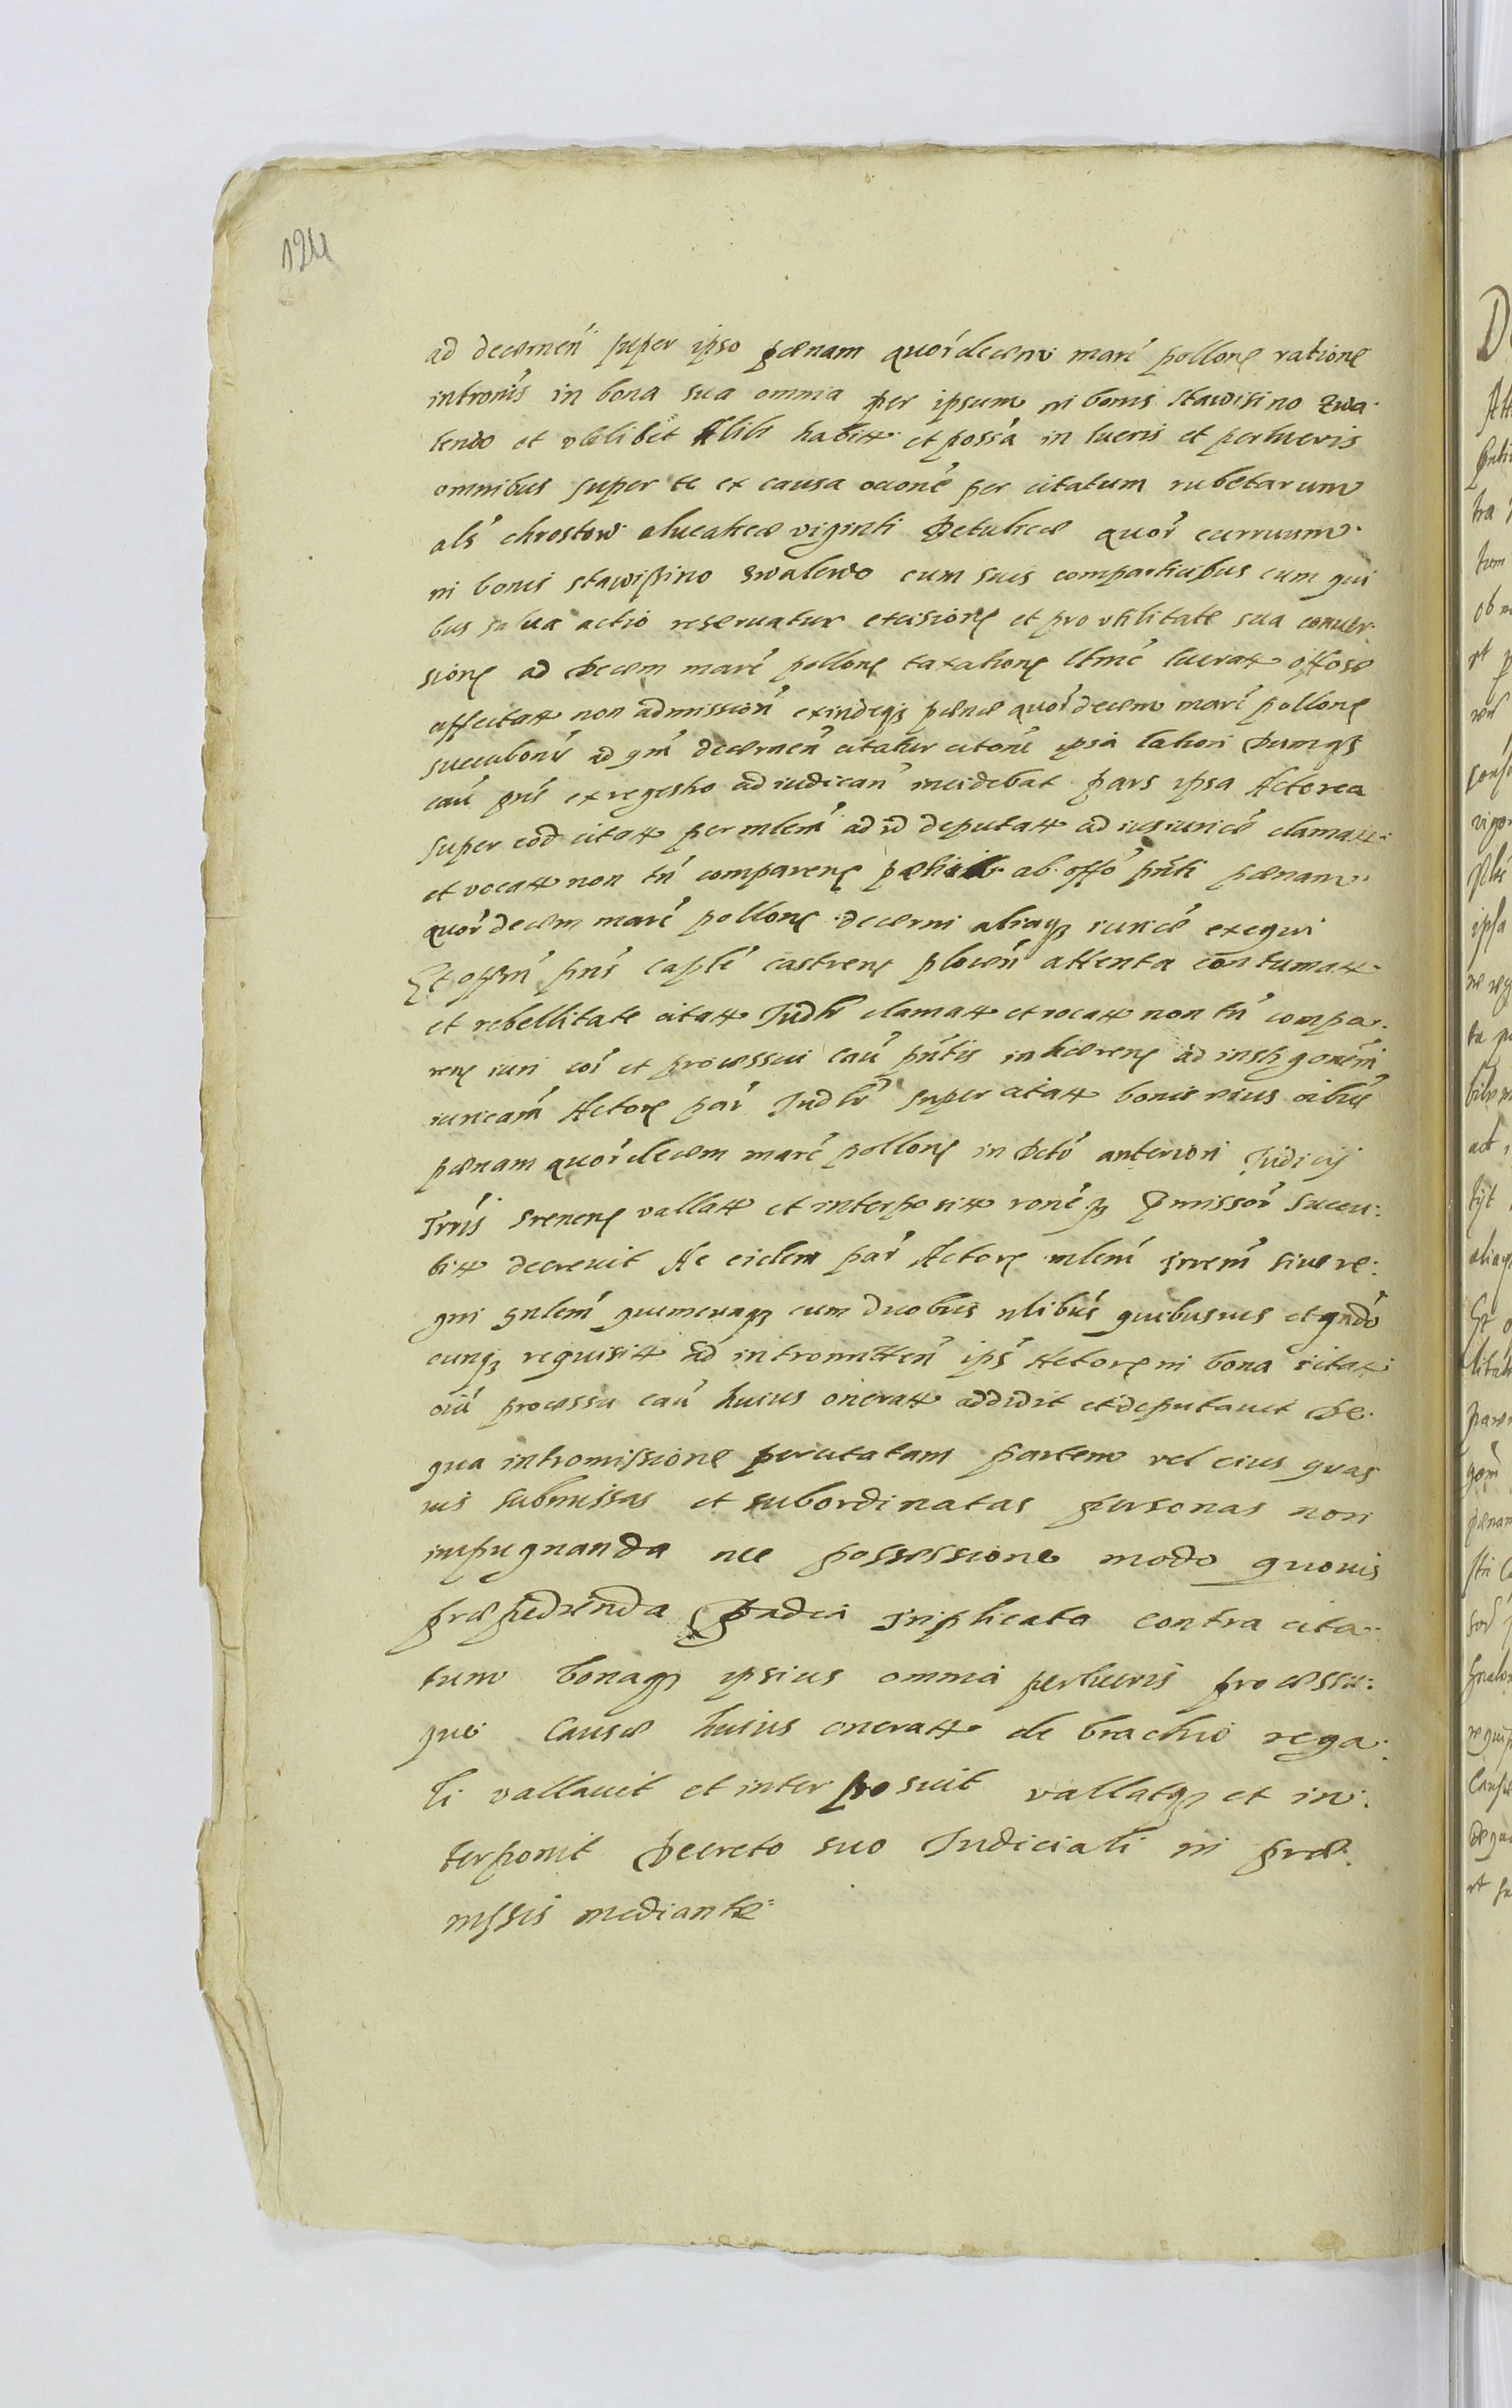 124
ad decernen̄ super ipso pœnam quor̃decem marc̃ pollone ratione
intromis̃ in bona sua omnia per ipsum in bonis Stawisino zwa-
lendo et vbilibet alibi habitt et poss̃a in lucris et perlucris
omnibus super te ex causa occone per citatum rubetarum
als̃ chrostow aheatica viginti quor̃ curruum
in bonis stawissino zwalewo cum suis comparticibus cum qui
bus salua actio reseruatur excisione et pro vtilitate sua conuer-
sione ad decem marc̃ pollone taxatione ltimẽ lucratt offose
affectatt non admission̄ exindeqʒ pœnæ quor̃decem marc̃ pollone
succubonis̃ ad qm̃ decernen̄ citatur citone ipsa latiori Cumqʒ
cau̇ pñs ex regestro ad iudican̄ incidebat pars ipsa Actorea
super eod̃ citatt per mlem̃ ad id deputatt ad ius iuricẽ clamatt
et vocatt non tñ comparene petiit ab offo pñti pœnam
quor̃decem marc̃ pollone decerni aliaqʒ iuricẽ exequi
Et offm̃ pñs caplẽ castrene plocen̄ attenta contumatt
et rebellitate citatt Judlr̃ clamatt et vocatt non tñ compa-
rene iuri cõi et processui cau̇ pñtis inhærene ad instigonẽm
iuricam̃ Actore par̃ Judlr̃ super citatt bonis eius oibus̃
pœnam quor̃decem marc̃ pollone in Dctõ anteriori Judicij
Trris̃ Srenene vallatt et interpositt ronẽqʒ Pmissor̃ succu-
bitt decreuit Ac eidem par̃ Actore mlem̃ trrem̃ siue re-
gni gnlem̃ quemcunqʒ cum duobus nlibus̃ quibusuis et qndõ
cunqʒ requisitt ad intromitten̄ ips̃ Actore in bona citatt
oiũ processu cau̇ huius oneratt addidit et deputauit De
qua intromissione percitatam partem vel eius quas
uis submissas et subordinatas personas non
impugnanda nec possessione modo quouis
præpedienda Vadia triplicata contra cita-
tum bonaqʒ ipsius omnia perlucris processu-
que Causæ huius oneratt de brachio rega-
li vallauit et interposuit vallatqʒ et in-
terponit Decreto suo Judiciali in præ-
missis mediante